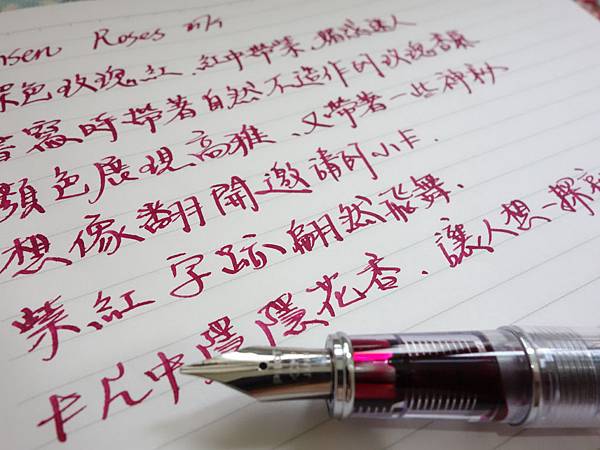 nsen Roses
色玫瑰紅、紅中帶紫、迷人
書寫時帶著自然不造作的玫瑰書
顏色展現高雅、又帶著一些神秘
想像翻開邀請的小卡.
紫紅字跡翩然飛舞.
卡片中隱隱花香.讓人想一探